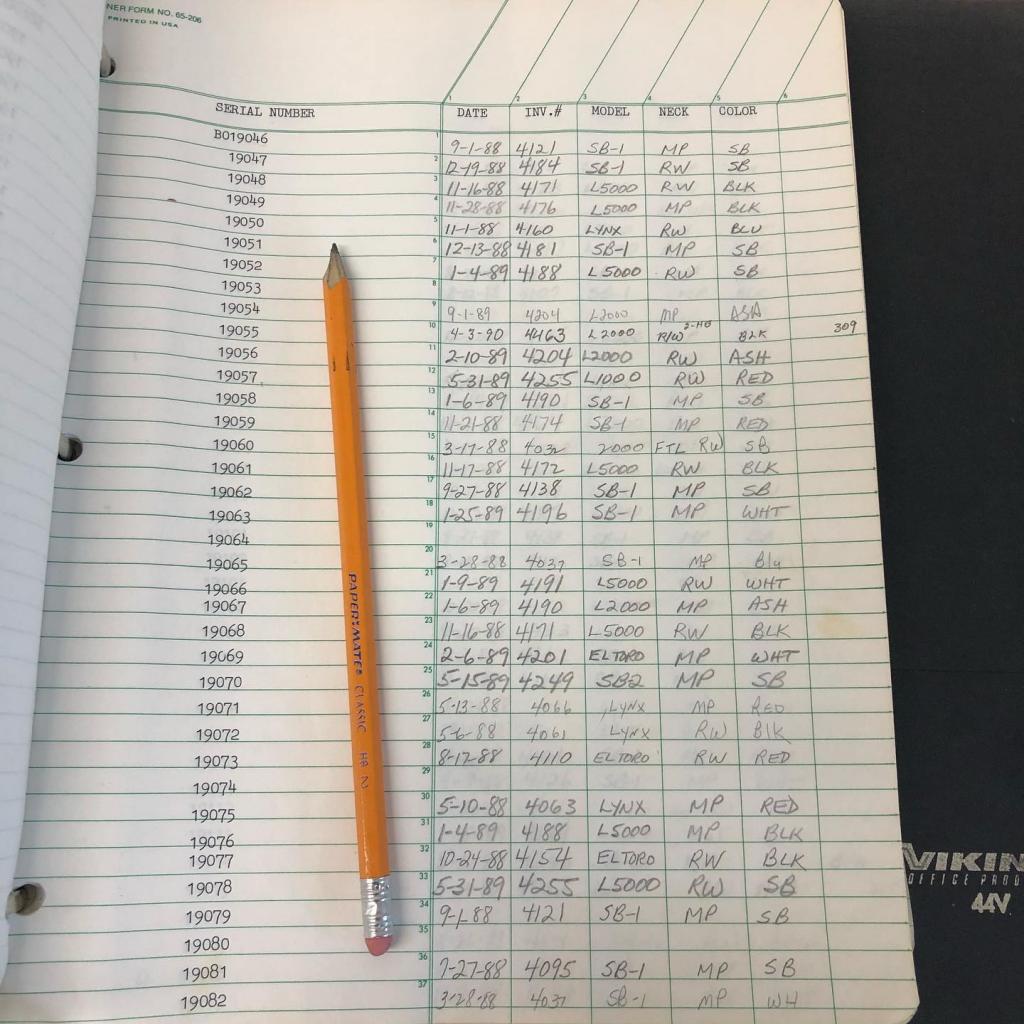 NER FORM NO. 65-206
PRINTED IN USA
SERIAL NUMBER DATE INV.# MODEL NECK COLOR
B019046 9-1-88 4121 SB-1 MP SB
19047 12-19-88 4184 SB-1 RW SB
19048 11-16-88 4171 L5000 RW BLK
19049 11-28-88 4176 L5000 MP BLK
19050 11-1-88 4160 LYNX RW BLU
19051 12-13-88 4181 SB-1 MP SB
19052 1-4-89 4188 L5000 RW SB
19053
19054 9-1-89 4204 L2000 MP ASH
19055 4-3-90 4463 L2000 R/W BLK 309
19056 2-10-89 4204 L2000 RW ASH
19057 5-31-89 4255 L1000 RW RED
19058 1-6-89 4190 SB-1 MP SB
19059 11-21-88 4174 SB-1 MP RED
19060 3-17-88 4032 2000 FTL RW SB
19061 11-17-88 4172 L5000 RW BLK
19062 9-27-88 4138 SB-1 MP SB
19063 1-25-89 4196 SB-1 MP WHT
19064
19065 3-28-88 4037 SB-1 MP Blu
19066 1-9-89 4191 L5000 RW WHT
19067 1-6-89 4190 L2000 MP ASH
19068 11-16-88 4171 L5000 RW BLK
19069 2-6-89 4201 EL TORO MP WHT
19070 5-15-89 4249 SB2 MP SB
19071 5-13-88 4066 LYNX MP RED
19072 5-6-88 4061 LYNX RW Blk
19073 8-12-88 4110 EL TORO RW RED
19074
19075 5-10-88 4063 LYNX MP RED
19076 1-4-89 4188 L5000 MP BLK
19077 10-24-88 4154 EL TORO RW BLK
19078 5-31-89 4255 L5000 RW SB
19079 9-1-88 4121 SB-1 MP SB
19080
19081 7-27-88 4095 SB-1 MP SB
19082 3-28-88 4037 SB-1 MP WH
PAPER:MATE® CLASSIC HB 2
VIKIN
OFFICE PROD